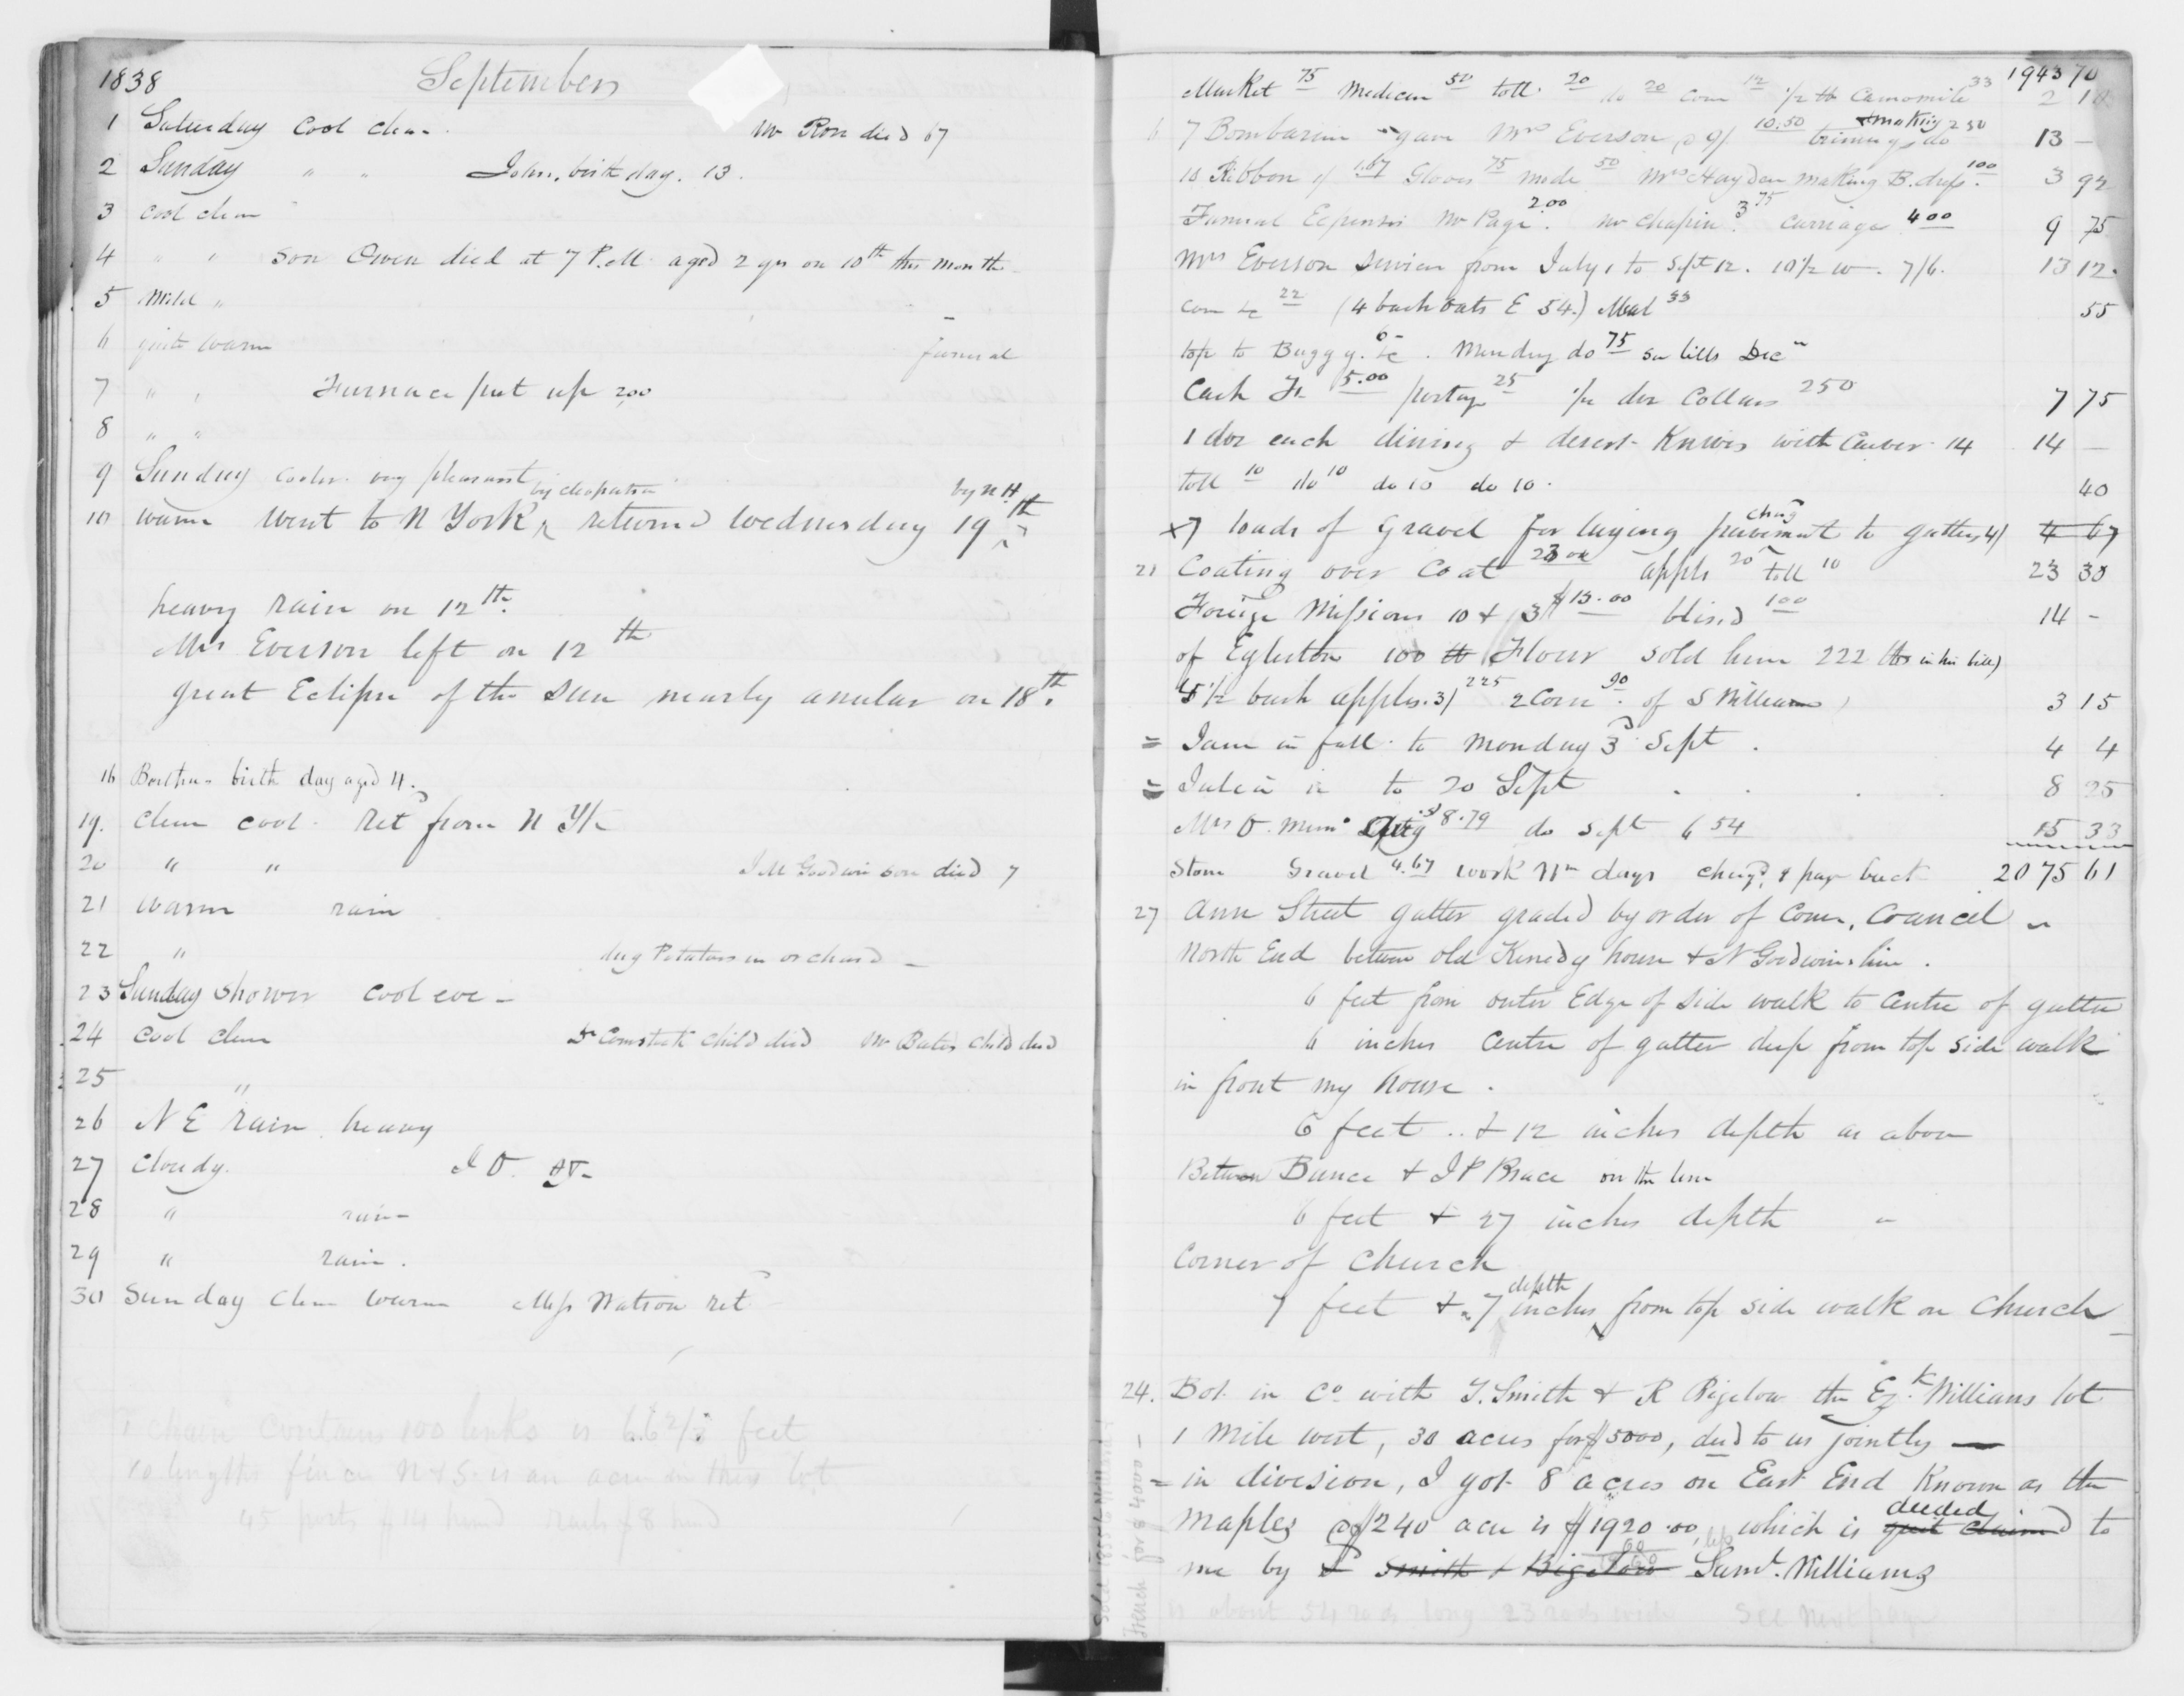 1838 September
1 Saturday Cool clear Mr Ross died 67
2 Sunday " " John, birth day. 13.
3 Cool clear
4 " " Son Owen died at 7 P.M. aged 2 yrs on 10th this month
5 Mild "
6 quite warm funeral
7 " " Furnace put up 200
8 " "
9 Sunday cooler very pleasant
10 warm went to N York by cleopatra returned Wednesday 19th by N H
heavy rain on 12th
Mrs Everson left on 12th
great Eclipse of the Sun nearly anular on 18th.
16 birth day aged 4.
19. clear cool. Ret from N Yk
20 " " Goodwin son died 7
21 Warm rain
22 " dug Potatoes in orchard
23 Sunday Shower Cool eve
24 Cool clear Dr Comstock child died Mr Bates child died
25 "
26 N E rain heavy
27 Cloudy.
28 " rain
29 " rain.
30 Sunday Clear warm Miss Watson ret
1 chain contains 100 links is 66 feet
10 lengths fence N & S. is an acre in this lot
45 posts
1943 70
Market 75 Medicin 50 toll 20 do 20 corn 12 1/2 lb Camomile 33 2 10
6 7 Bombazine gave Mrs Everson 9/ 10.50 triming & making do 2 50 13 –
10 Ribbon 1.67 Gloves 75 made 50 Mrs Hayden making B. dress. 100 3 92
Funeral Expenses Mr Page 2.00 Mr Chapin 3 75 Carriage 4 00 9 75
Mrs Everson Service from July 1 to Sept 12. 10 1/2 w. 7/6. 13 12
22 (4 bush oats E 54.) Meal 33 55
top to Buggy. 6 – Mending do 75 bills Dec
Cash 5.00 postage 25 1/2 doz Collars 250 7 75
1 doz each dining & desert Knives with Carver 14 14 –
toll 10 do 10 do 10 do 10. 40
x7 loads of Gravel for laying pavement to gutter 4/ 4 67
21 Coating over Coat 23 00 apples 20 toll 10 23 30
Foreign Missions 10 & 3 $13.00 100 14 –
of Egleston 100 lb Flour sold him 222 lbs in his bill)
4 1/2 bush apples. 3/ 225 2 Corn 90. of S Williams 3 15
= Jane in full to Monday 3d Sept. 4 4
= Julia in to 20 Sept 8 25
Mrs O. Aug $8.79 do Sept 6 54 15 33
Stone Gravel 4.67 work days 2075 61
27 Ann Street gutter graded by order of Com. Council
North End between old Kenedy house & N Goodwins line.
6 feet from outer Edge of side walk to Centre of gutter
6 inches Centre of gutter deep from top side walk
in front my house.
6 feet .. & 12 inches depth as above
Between Bunce & J P Brace on the line
6 feet & 27 inches depth "
Corner of Church
7 feet & 7 inches depth from top side walk on Church
24. Bot in Co with T. Smith & R Bigelow the Williams lot
1 Mile west, 30 acres for $5000, deed to us jointly —
= in division, I got 8 acres on East End Known as the
Maples @ $240 acre is $1920.00, which is quit claimed deeded to
me by Smith & Bigelow Saml. Williams
is about 54 rods long 23 rods wide See Next page